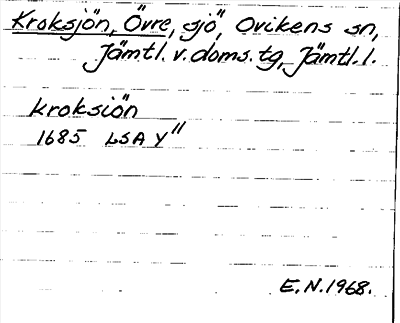 Kroksjön, Övre, sjö, Ovikens sn,
Jämtl. v. doms. tg, Jämtl. l.
kroksiön
1685 LSA Y"
E.N. 1968.